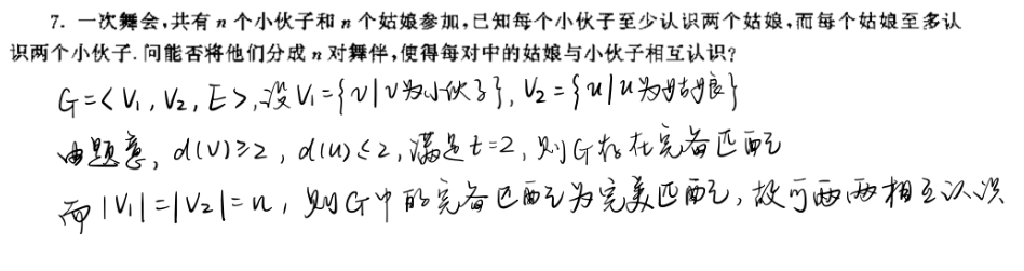 7. 一次舞会,共有 n 个小伙子和 n 个姑娘参加,已知每个小伙子至少认识两个姑娘,而每个姑娘至多认
识两个小伙子. 问能否将他们分成 n 对舞伴,使得每对中的姑娘与小伙子相互认识?
G=<V₁, V₂, E>,设V₁={v|v为小伙子}, V₂={u|u为姑娘}
由题意, d(v)≥2, d(u)≤2,满足t=2, 则G存在完备匹配
而|V₁|=|V₂|=n, 则G中的完备匹配为完美匹配, 故可两两相互认识